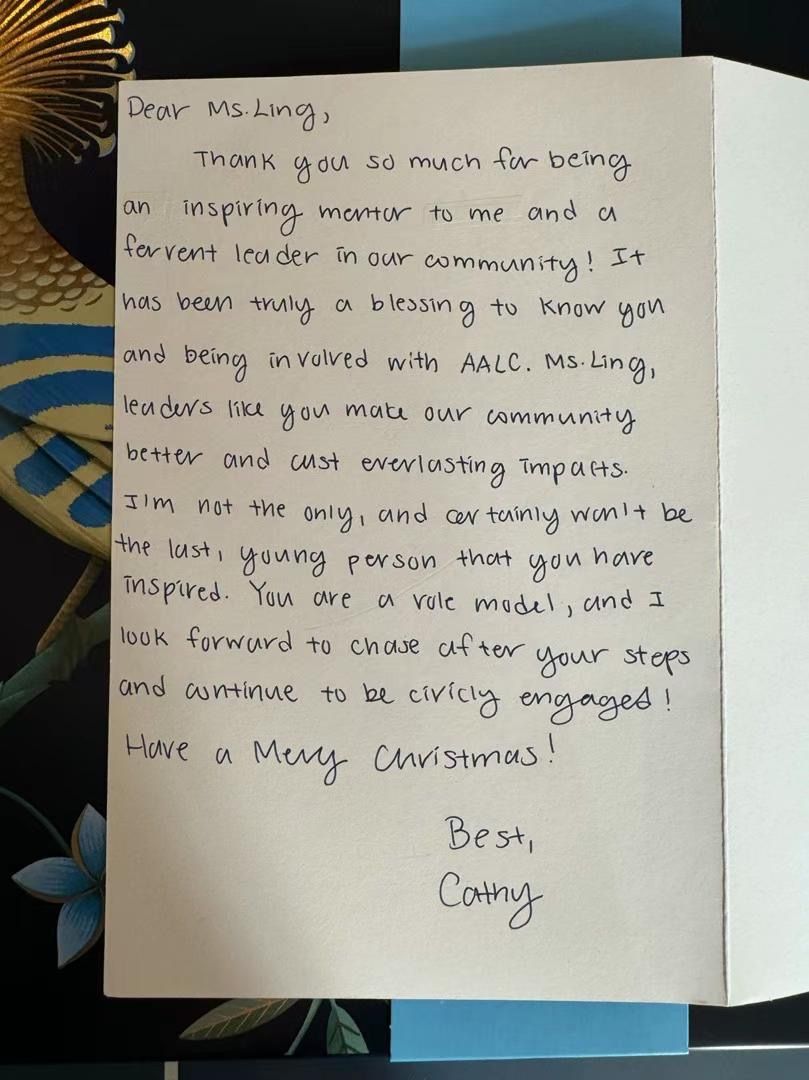 Dear Ms. Ling,
Thank you so much for being
an inspiring mentor to me and a
fervent leader in our community! It
has been truly a blessing to know you
and being involved with AALC. Ms. Ling,
leaders like you make our community
better and cast everlasting impacts.
I'm not the only, and certainly won't be
the last, young person that you have
inspired. You are a role model, and I
look forward to chase after your steps
and continue to be civicly engaged!
Have a Merry Christmas!
Best,
Cathy